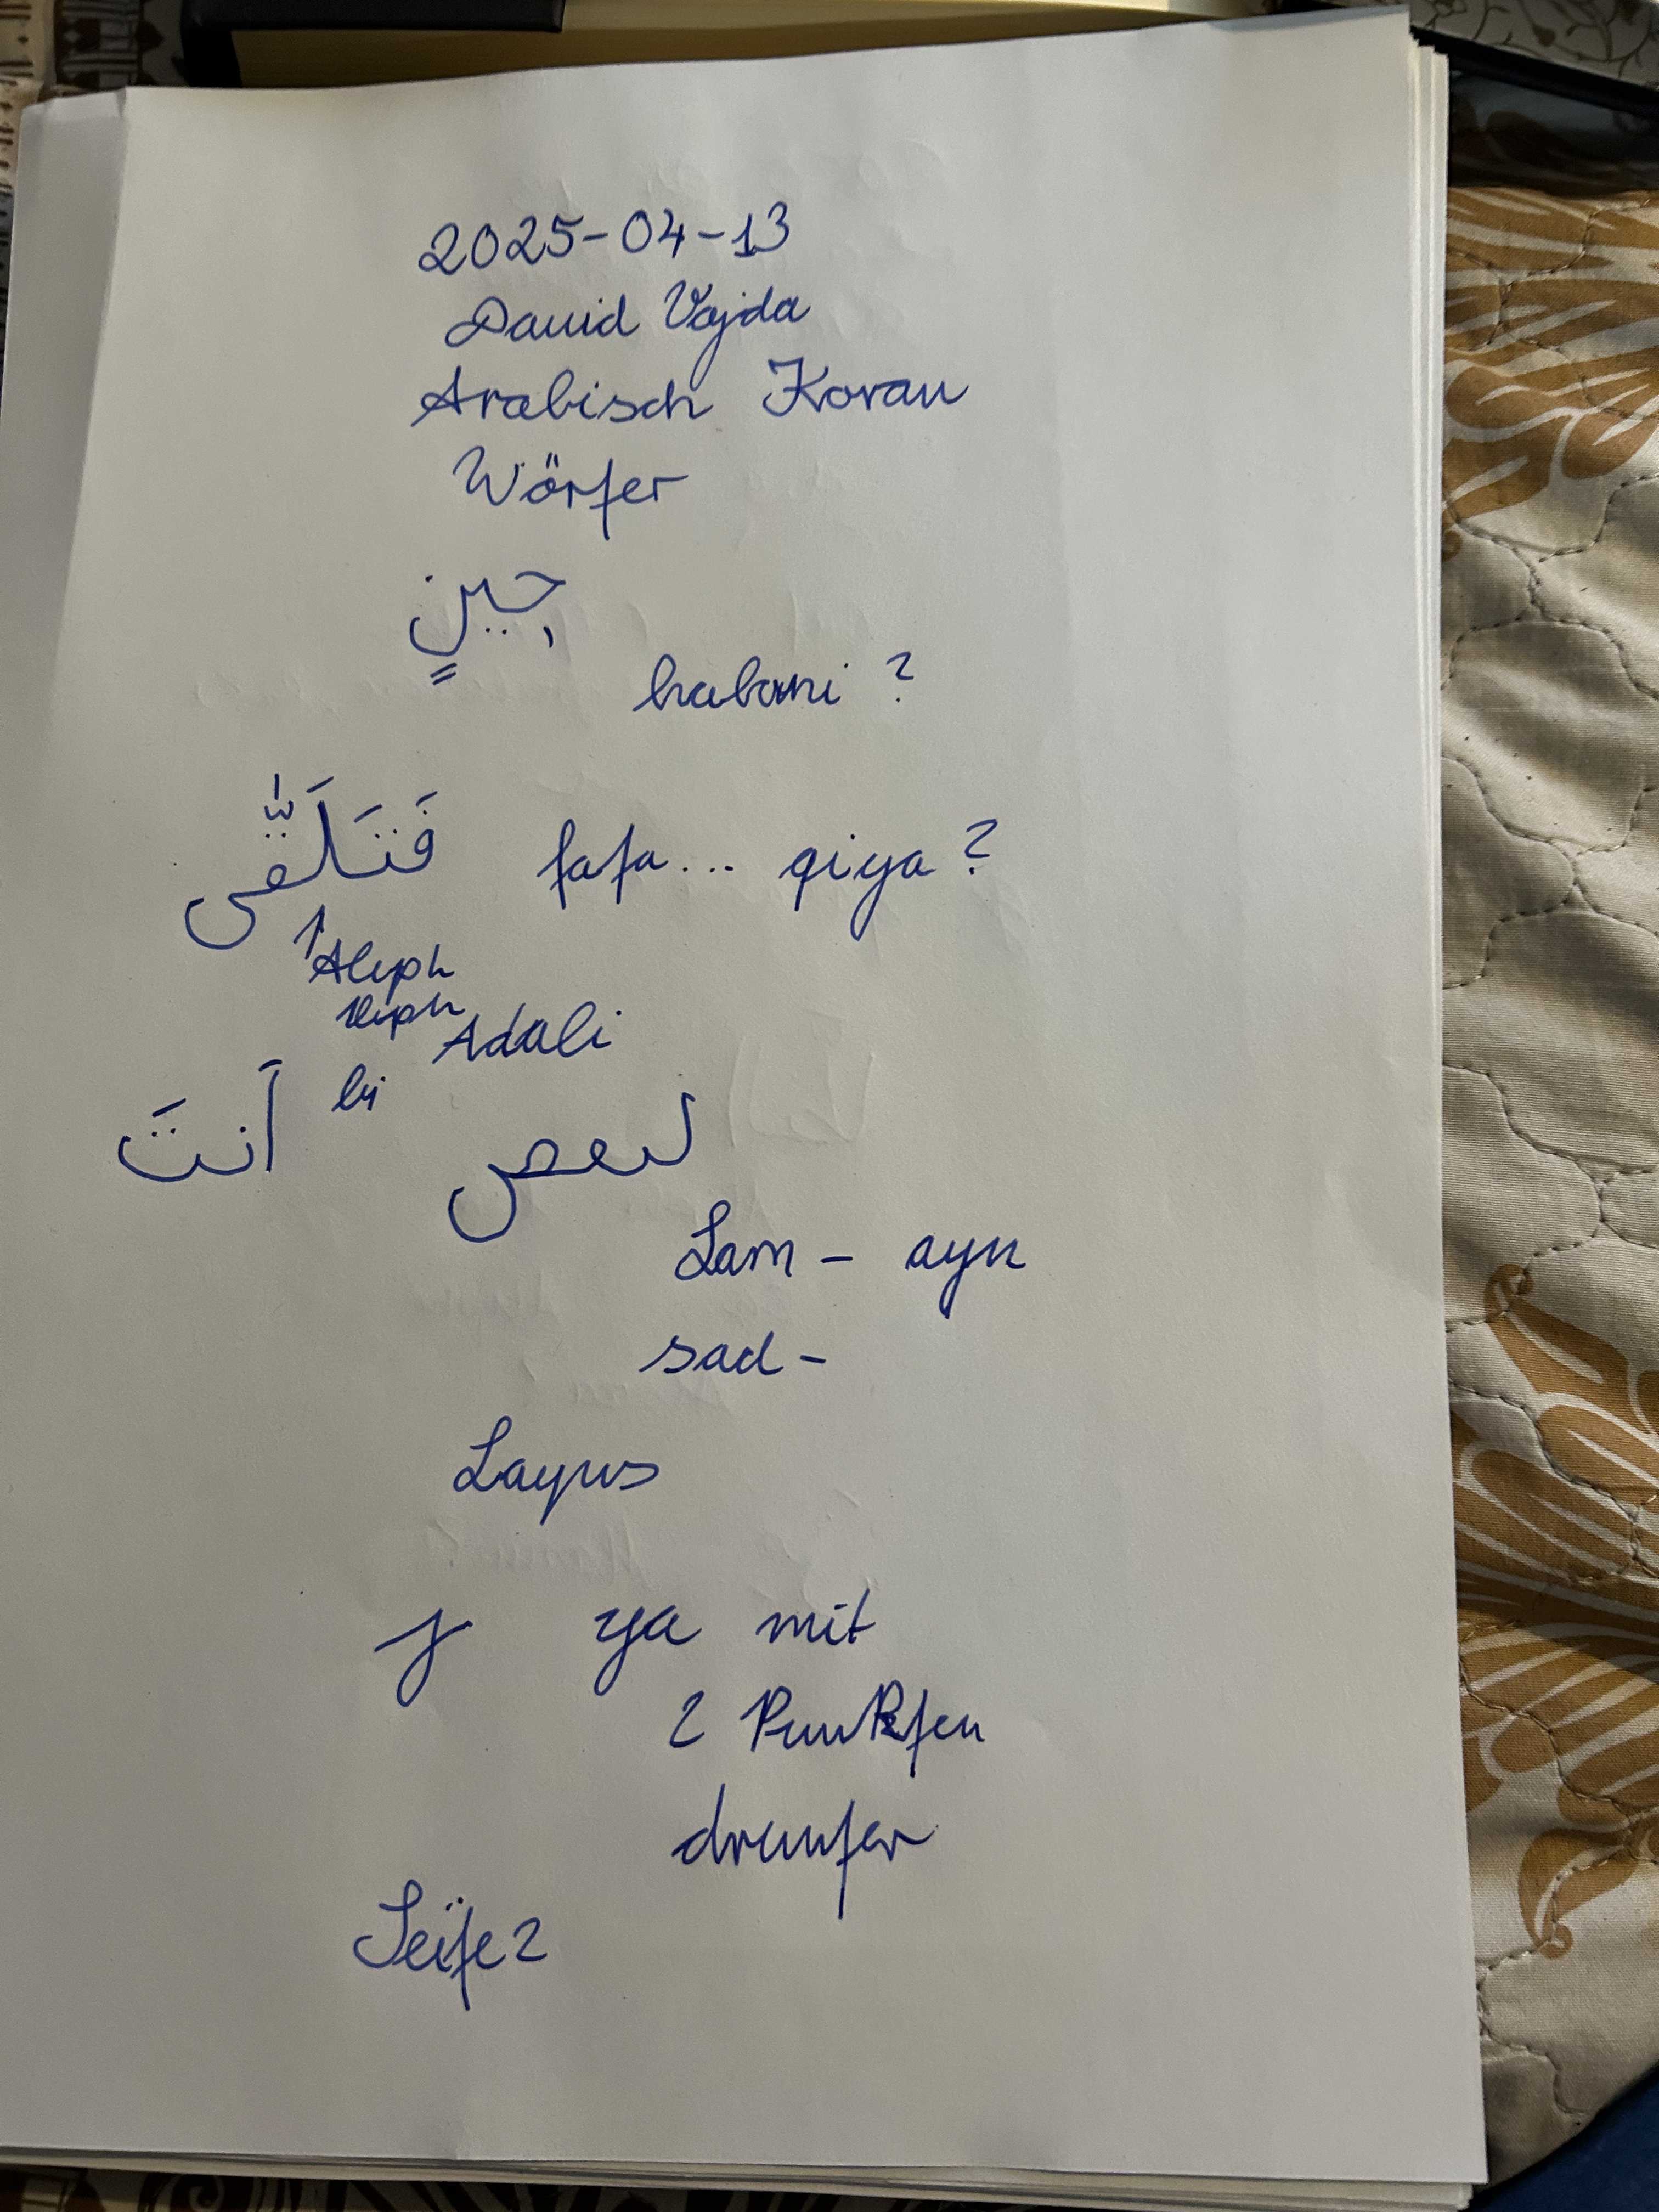 2025-04-13
David Vajda
Arabisch Koran
Wörter
حِينٍ
habani ?
فَتَلَقَّىٰ fata... qiya ?
↑Aleph
Adali
bi
أَنتَ لبعص
Lam - ayn
sad -
Layus
ya mit
2 Punkten
drunter
Seite 2